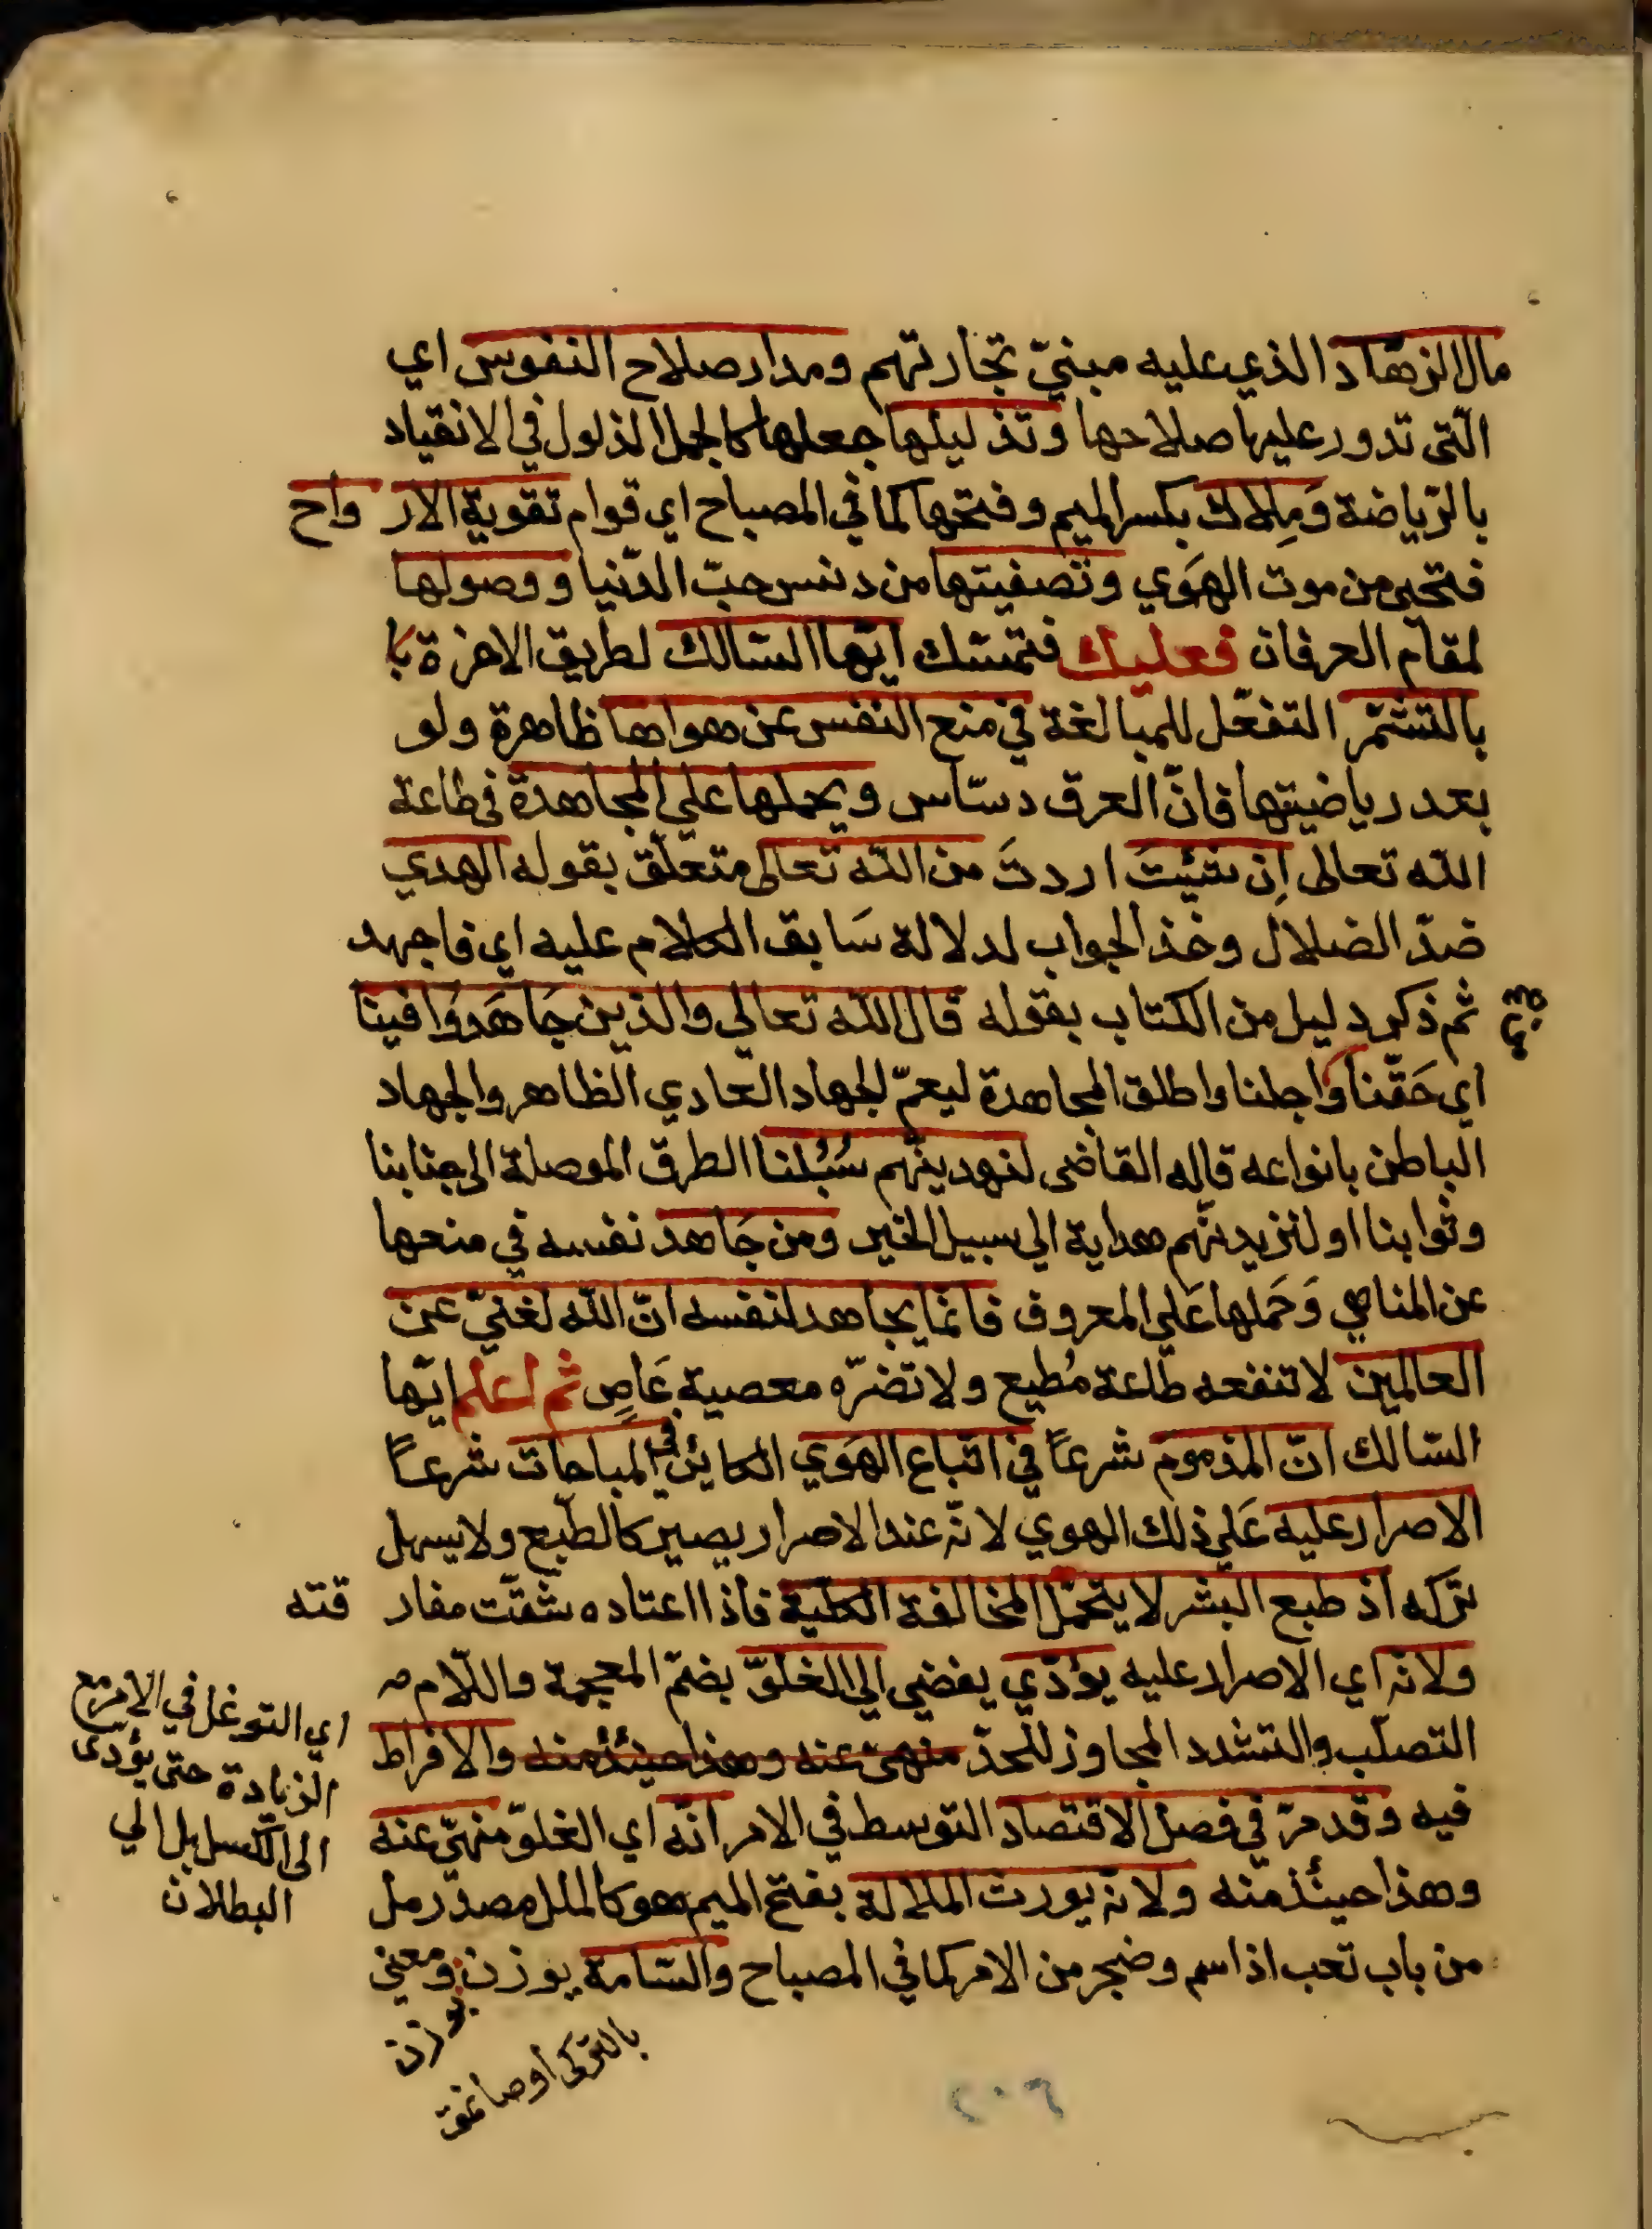 مال الزهّاد الذي عليه مبنيّ تجارتهم ومدار صلاح النفوس اي
الّتى تدور عليها صلاحها وتذليلها جعلها كالجمل الذلول في الانقياد
بالرّياضة وَمِلاك بكسر الميم وفتحها كما في المصباح اي قوام تقوية الارواح
فتحيى من موت الهَوي وتصفيتها من دنس حبّ الدّنيا ووصولها
لمقام العرفان فعليك فتمسّك ايّها السّالك لطريق الاخرة با
بالتشمّر التفعّل للمبالغة في منع النفس عن هواها ظاهرة ولو
بعد رياضيتها فانّ العرق دسّاس ويحملها علي المجاهدة في طاعة
الله تعالى اِن شِئتَ اردتَ من الله تعالى متعلّق بقوله الهدي
ضدّ الضلال وخذ الجواب لدلالة سَابق الكلام عليه اي فاجهد
ثم ذكر دليل من الكتاب بقوله قال الله تعالي والذين جَاهَدوَا فينا
اي حَقّنا وَاجلنا واطلق المجاهدة ليعمّ الجهاد العادي الظاهر والجهاد
الباطن بانواعه قاله القاضى لنهدينّهم سُبُلنا الطرق الموصلة الى جنابنا
وثوابنا او لنزيدنّهم هداية الي سبيل الخير ومن جَاهد نفسه في منعها
عن المناهي وَحَملها عَلي المعروف فانما يجاهد لنفسه انّ الله لغنيّ عن
العالمين لا تنفعه طاعة مُطيع ولا تضرّه معصية عَاصٍ ثم اعلم ايّها
السّالك انّ المذموم شرعاً في اتباع الهَوي الكاين في المباحات شرعاً
الاصرار عليه عَلي ذلك الهوي لانّه عند الاصرار يصير كالطّبع ولا يسهل
تركه اذ طبع البشر لا يتحمّل المخالفة الكلّية فاذا اعتاده شقّت مفارقته
ولانّه اي الاصرار عليه يؤدّي يفضي الي الغلوّ بضمّ المعجمة واللّام
التصلّب والتشدد المجاوز للحدّ منهيّ عنه وهذا حينئذ منه والافراط
فيه وقد مرّ في فصل الاقتصاد التوسط في الامر انّه اي الغلوّ منهيّ عنه
وهذا حينئذ منه ولانّه يورث الملالة بفتح الميم هو كالملل مصدر مل
من باب تعب اذا سم وضجر من الامر كما في المصباح والسّامة بوزن ومعني
بوزن
بالتركى اوصانمق
اي التوغل في الامر مع
الزيادة حتى يؤدى
الى الكسل بل الي
البطلان
٢٠٦